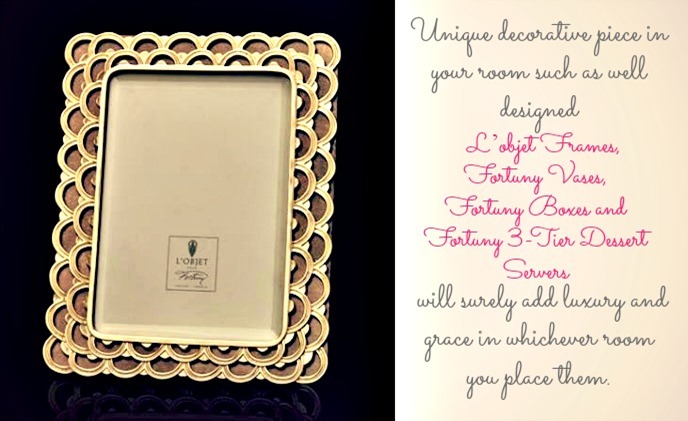 L'OBJET
Fortuny
Unique decorative piece in
your room such as well
designed
L'objet Frames,
Fortuny Vases,
Fortuny Boxes and
Fortuny 3-Tier Dessert
Servers
will surely add luxury and
grace in whichever room
you place them.